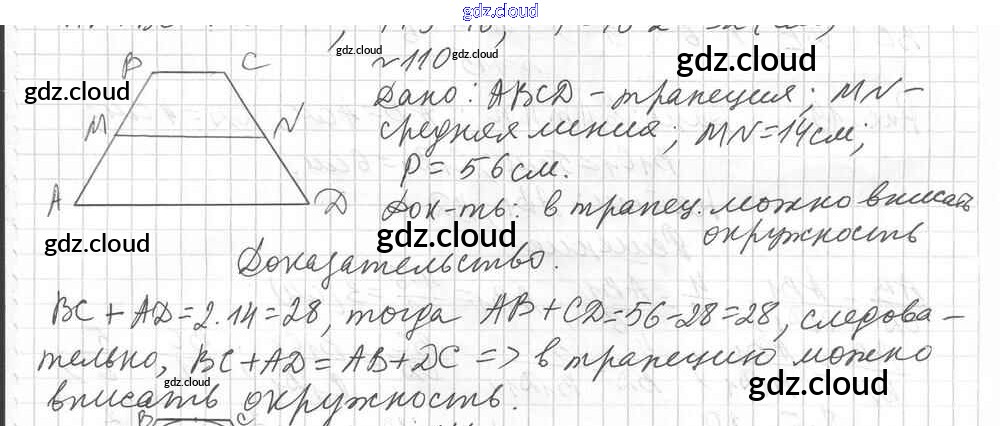 gdz.cloud
№110
Дано: ABCD - трапеция; MN -
средняя линия; MN = 14 см;
P = 56 см.
Док-ть: в трапец. можно вписать
окружность
B C
M N
A D
Доказательство.
BC + AD = 2 · 14 = 28, тогда AB + CD = 56 - 28 = 28, следова-
тельно, BC + AD = AB + DC => в трапецию можно
вписать окружность.
gdz.cloud
gdz.cloud
gdz.cloud
gdz.cloud
gdz.cloud
gdz.cloud
gdz.cloud
gdz.cloud
gdz.cloud
B C